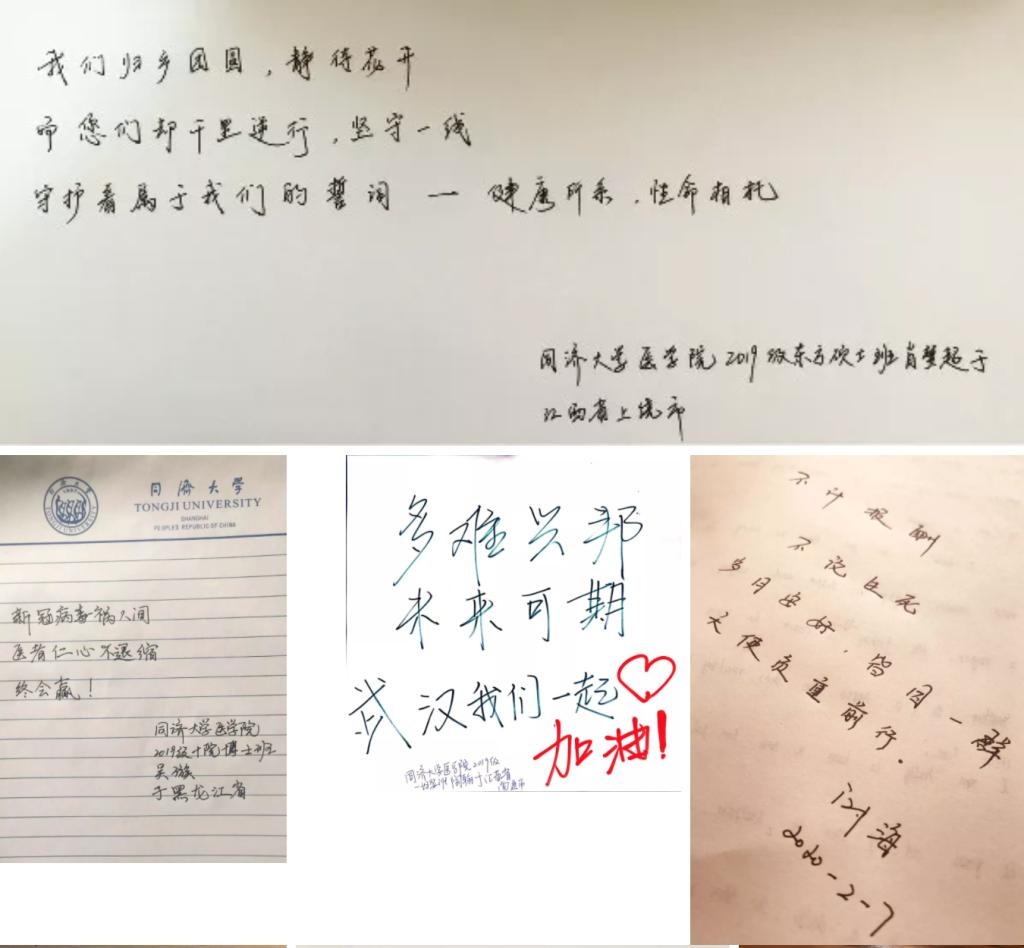 我们归乡团圆，静待花开
而您们却千里逆行，坚守一线
守护着属于我们的誓词 — 健康所系，性命相托
同济大学医学院2019级东方硕士班肖梦起于
江西省上饶市
同济大学
TONGJI UNIVERSITY
SHANGHAI
PEOPLE'S REPUBLIC OF CHINA
新冠病毒祸人间
医者仁心不退缩
终会赢！
同济大学医学院
2019级十院博士班
吴
于黑龙江省
多难兴邦
未来可期
武汉我们一起
加油!
同济大学医学院2019级
于江苏省
不计报酬
不论生死
岁月安好，皆因一群
天使负重前行.
刘海
2020-2-7